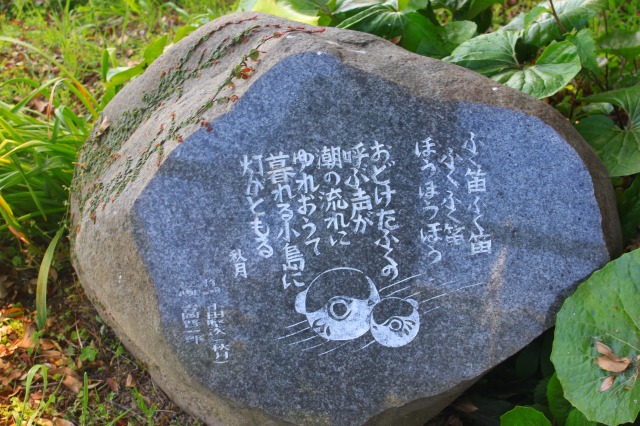 ふく笛ふく笛
ふくふく笛
ほうほうほう
おどけたふくの
呼ぶ声が
潮の流れに
ゆれおうて
暮れる小島に
灯がともる
秋月